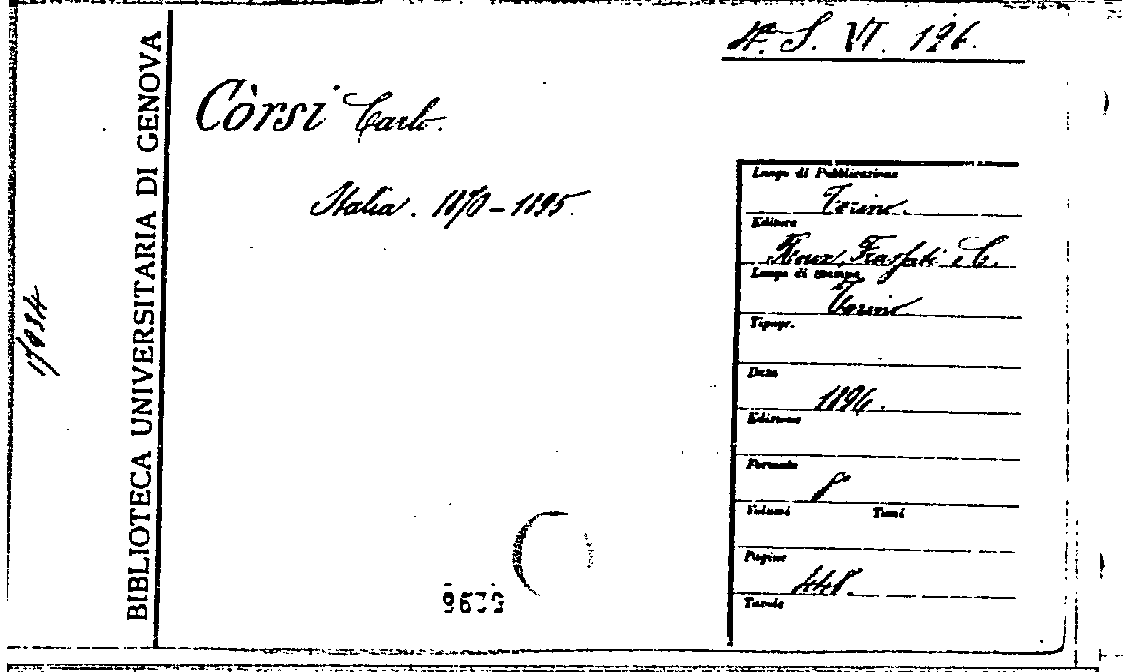 4. S. VI. 126.
BIBLIOTECA UNIVERSITARIA DI GENOVA
Còrsi Carlo.
Italia. 1870-1895.
Luogo di Pubblicazione
Torino.
Editore
Roux, Frassati e C.
Luogo di stampa
Torino
Tipogr.
Data
1896.
Edizione
Formato
8°
Volumi Tomi
Pagine
448.
Tavole